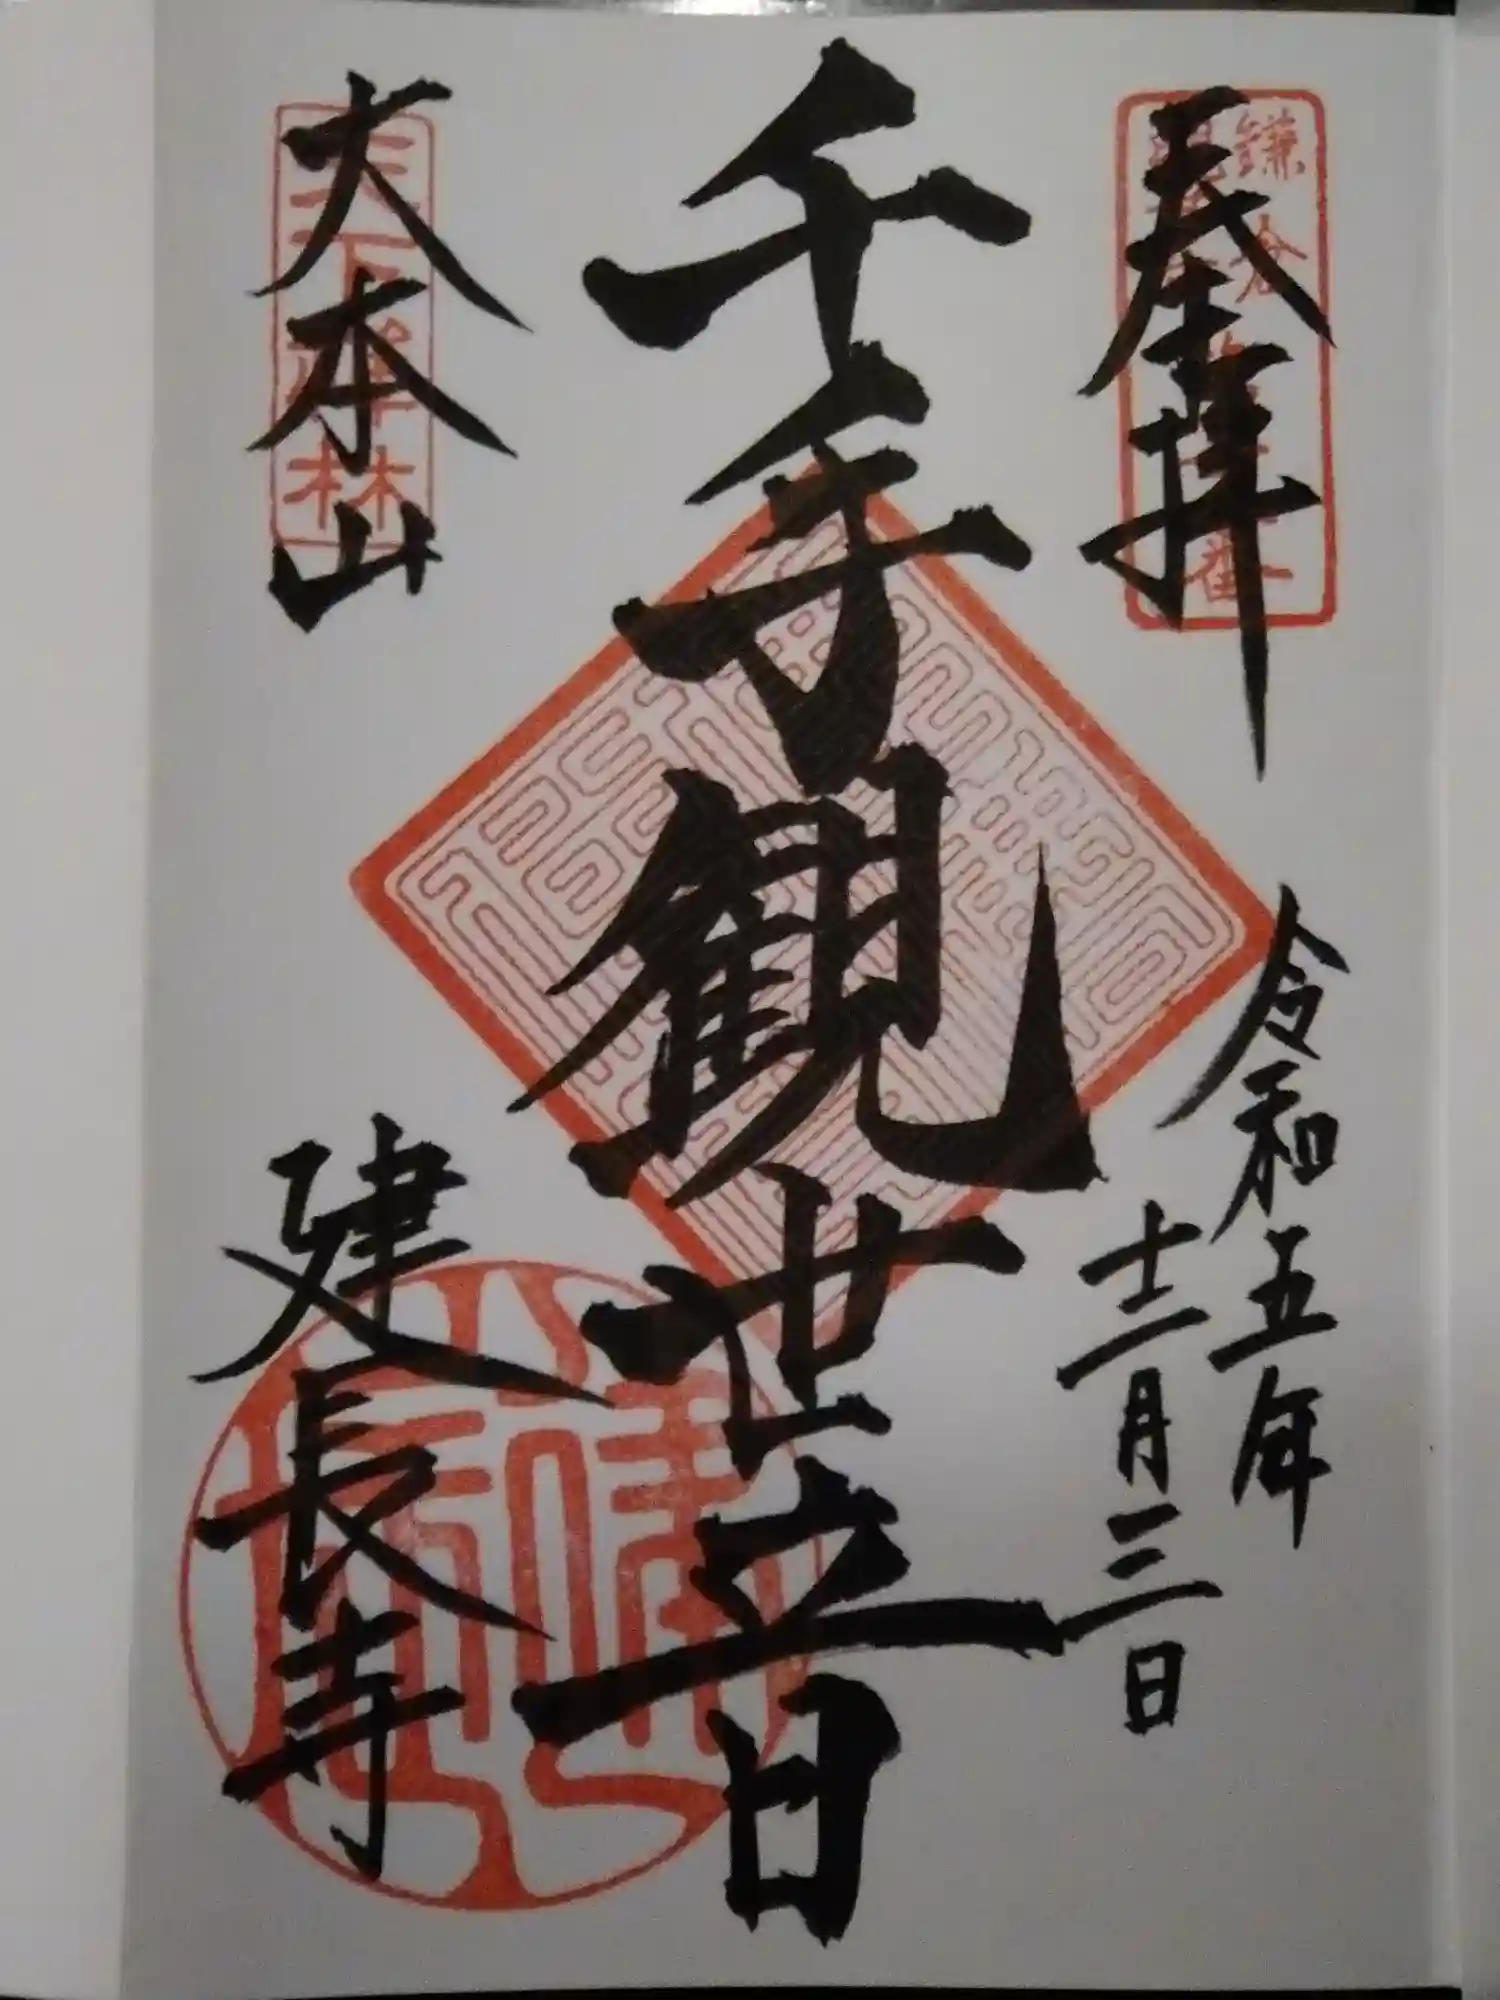 奉拝
令和五年
十二月三日
千手観世音
大本山
建長寺
天下禅林